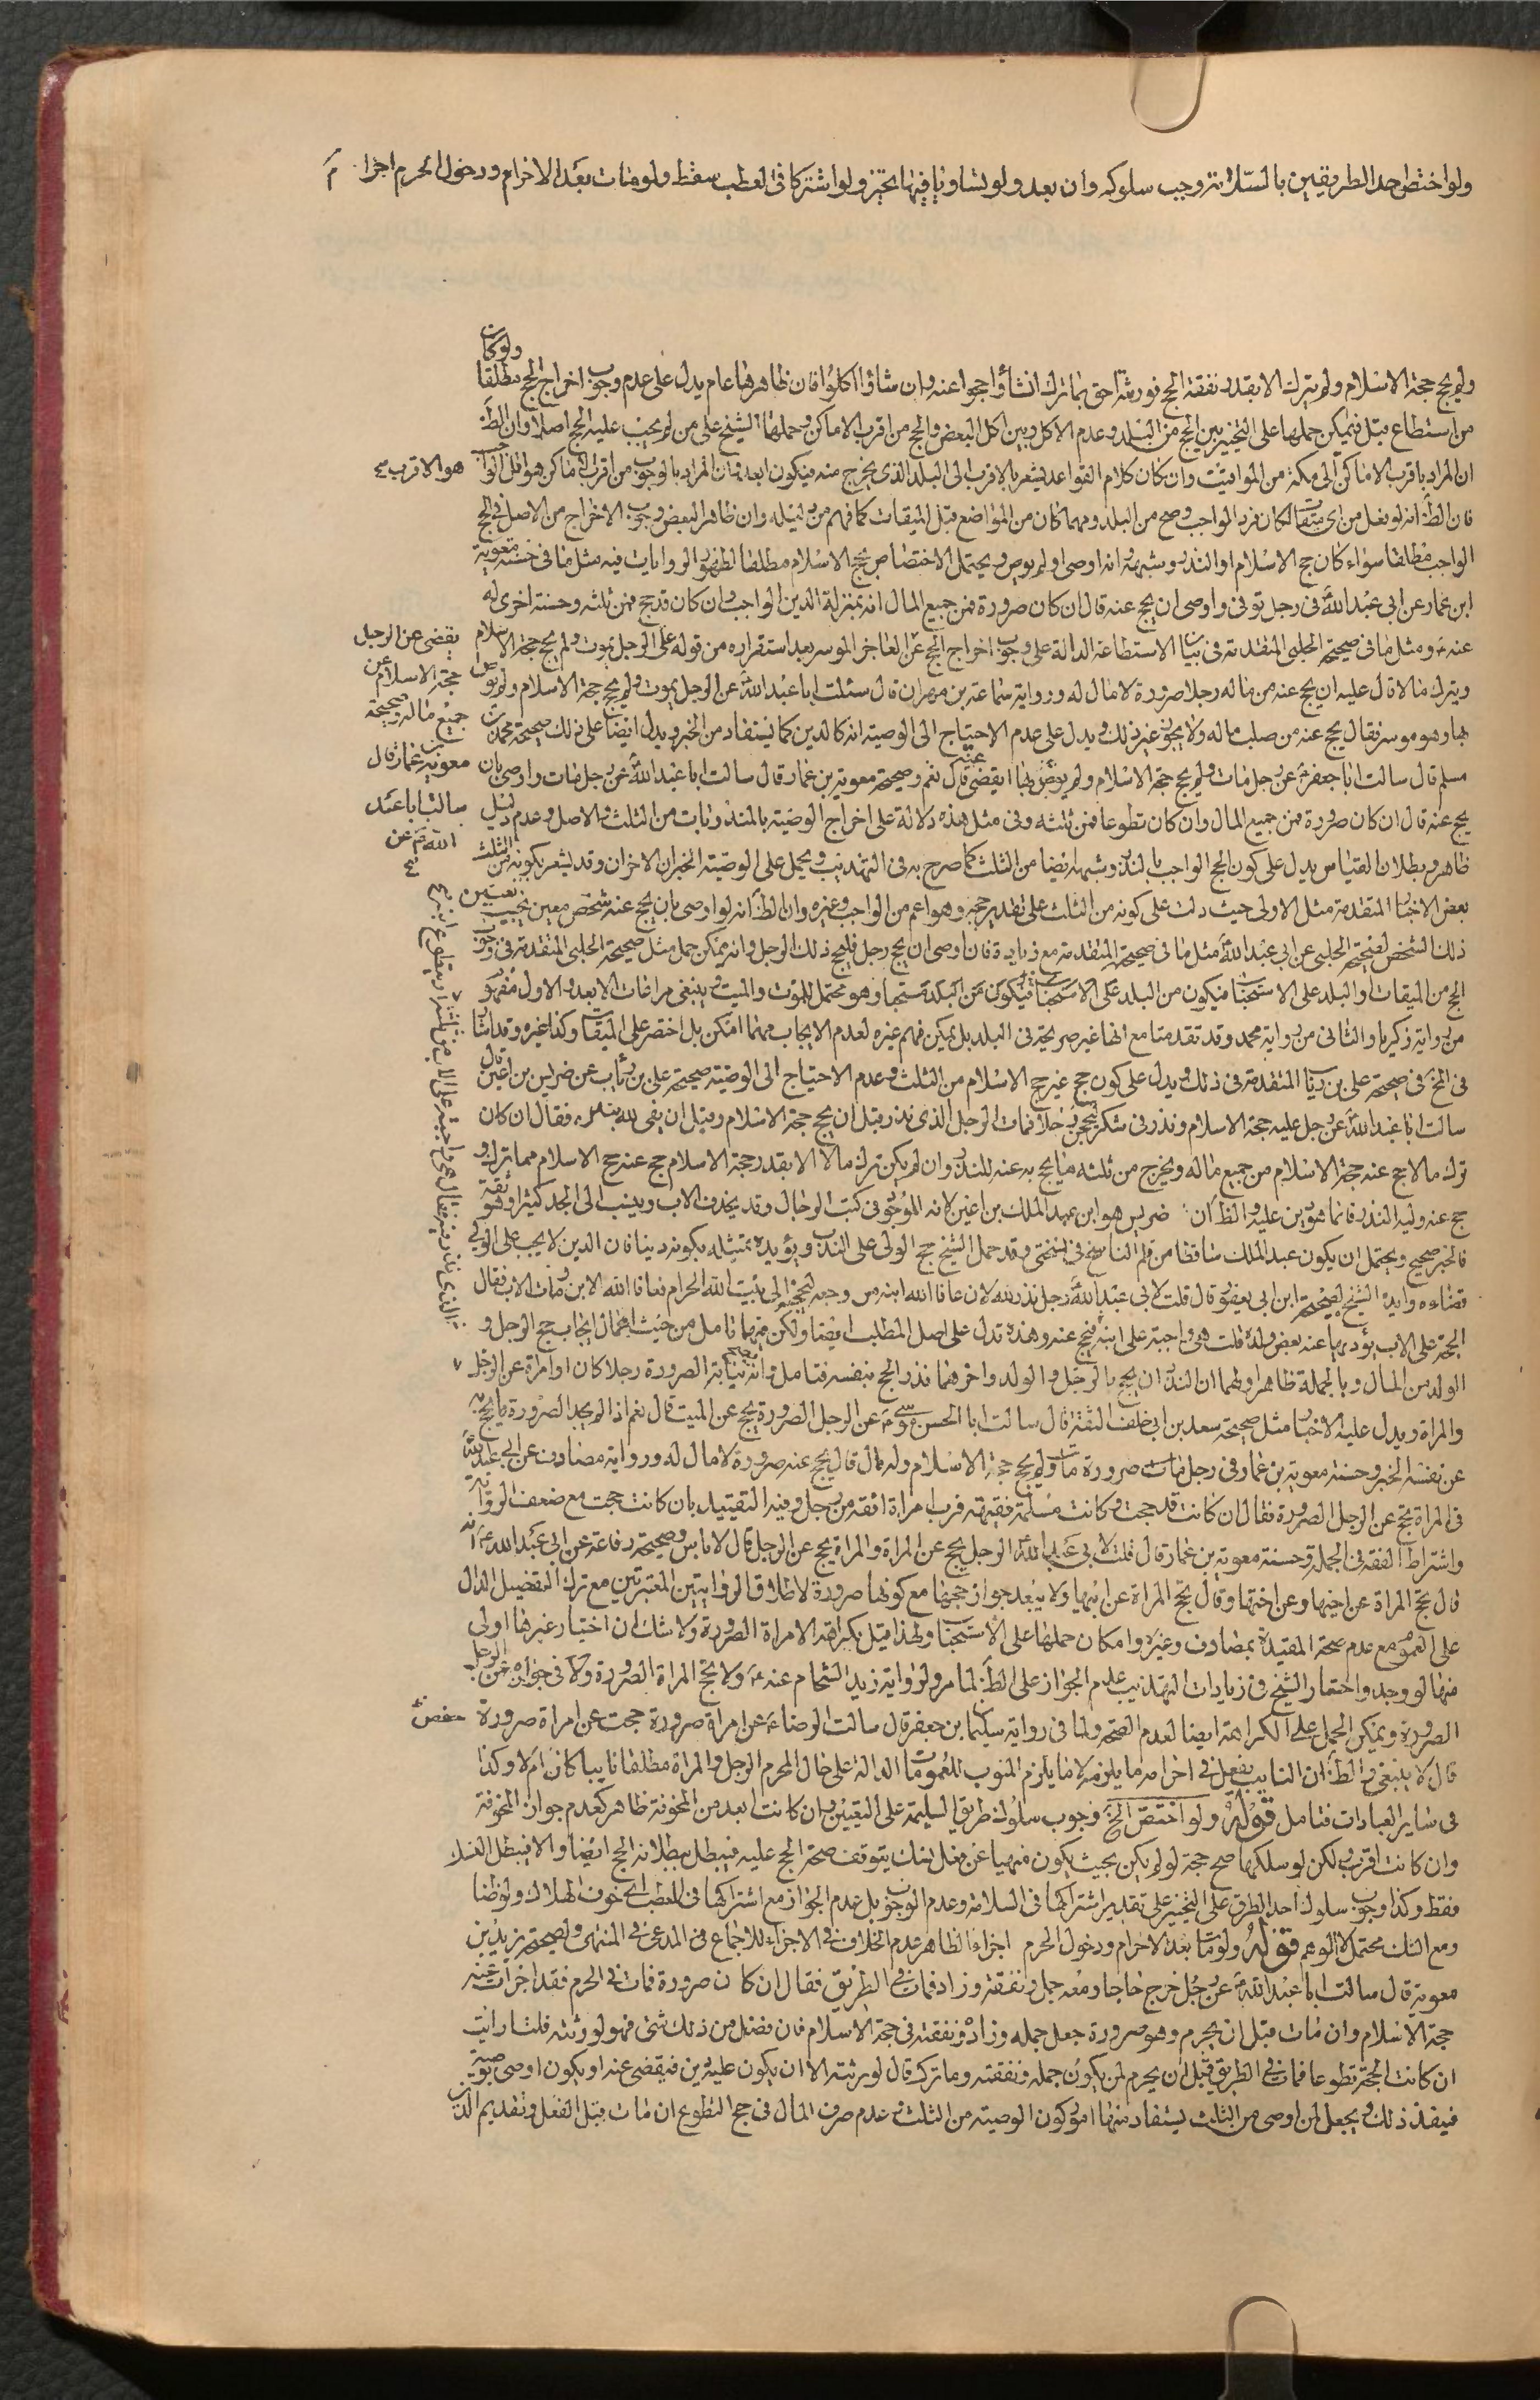 ولو اختص احد الطريقين بالسلامة وجب سلوكه وان بعد ولو تساويا فيها تخير ولو اشتركا فى العطب سقط ولو مات بعد الاحرام ودخول الحرم اجزأ
ولو كان
ولم يحج حجة الاسلام ولم يترك الا بقدر نفقة الحج فورثته احق بما ترك ان شاؤا حجوا عنه وان شاؤا اكلوا فان ظاهرها عام يدل على عدم وجوب اخراج الحج مطلقا
من استطاع قبل فيمكن حملها على التخيير بين الحج من البلد وعدم الاكل وبين اكل البعض والحج من اقرب الاماكن وحملها الشيخ على من لم يجب عليه الحج اصلا وان الظ
ان المراد باقرب الاماكن الى مكة من المواقيت وان كان كلام القواعد يشعر بالاقرب الى البلد الذى يخرج منه فيكون ابعد فان المراد بالوجوب من اقرب الاماكن هو اقل الواجب
هو الاقرب
فان الظ انه لو فعل من اى ميقات لكان فرد الواجب وصح من البلد ومهما كان من المواضع قبل الميقات كما فهم من دليله وان ظاهر البعض وجوب الاخراج من الاصل فى الحج
الواجب مطلقا سواء كان حج الاسلام او النذر وشبهه وانه اوصى او لم يوص ويحتمل الاختصاص بحج الاسلام مطلقا لظهور الروايات فيه مثل ما فى حسنة معوية
ابن عمار عن ابى عبد الله فى رجل توفى واوصى ان يحج عنه قال ان كان صرورة فمن جميع المال انه بمنزلة الدين الواجب وان كان قد حج فمن ثلثه وحسنة اخرى له
عنه ومثل ما فى صحيحة الحلبى المتقدمة فى بيان الاستطاعة الدالة على وجوب اخراج الحج عن العاجز الموسر بعد استقراره من قوله على الرجل يموت ولم يحج حجة الاسلام
يقضى عن الرجل
حجة الاسلام من
جميع ماله وصحيحة
معوية بن عمار قال
سالت ابا عبد
الله عن
ويترك مالا قال عليه ان يحج عنه من ماله رجلا صرورة لا مال له ورواية سماعة بن مهران قال سئلت ابا عبد الله عن الرجل يموت ولم يحج حجة الاسلام ولم يوص
بها وهو موسر فقال يحج عنه من صلب ماله ولا يجوز غير ذلك ويدل على عدم الاحتياج الى الوصية انه كالدين كما يستفاد من الخبر ويدل ايضا على ذلك صحيحة محمد بن
مسلم قال سالت ابا جعفر عن رجل مات ولم يحج حجة الاسلام ولم يوص بها ايقضى عنه قال نعم وصحيحة معوية بن عمار قال سالت ابا عبد الله عن رجل مات واوصى بان
يحج عنه قال ان كان صرورة فمن جميع المال وان كان تطوعا فمن ثلثه وفى مثل هذه دلالة على اخراج الوصية بالمنذورات من الثلث لا الاصل وعدم دليل
ظاهر وبطلان القياس يدل على كون الحج الواجب بالنذر وشبهه ايضا من الثلث كما صرح به فى التهذيب ويحمل على الوصية الخبران الاخران وقد يشعر بكونه من الثلث
بعض الاخبار المتقدمة مثل الاولى حيث دلت على كونه من الثلث على تقدير حجه وهو اعم من الواجب وغيره وان الظ انه لو اوصى بان يحج عنه شخص معين يجب تعيين
ذلك الشخص لصحيحة الحلبى عن ابى عبد الله مثل ما فى صحيحته المتقدمة مع زيادة فان اوصى ان يحج رجل فليحج ذلك الرجل وانه يمكن حمل مثل صحيحة الحلبى المتقدمة فى وجوب
الحج من الميقات او البلد على الاستحباب فيكون من البلد على الاستحباب فيكون من البلد مستحبا وهو محتمل للموت والميت وينبغى مراعات الابعد والاول مفهوم
من رواية زكريا والثانى من رواية محمد وقد تقدمتا مع انها غير صريحة فى البلد بل يمكن فهم غيره لعدم الايجاب مهما امكن بل اختصر على الميقات وكذا غيره وقد اشار
فى الخ فى صحيحة على بن رئاب المتقدمة فى ذلك ويدل على كون حج غير حج الاسلام من الثلث وعدم الاحتياج الى الوصية صحيحة على بن رئاب عن ضريس بن اعين قال
سالت ابا عبد الله عن رجل عليه حجة الاسلام ونذر فى شكر ليحجن رجلا فمات الرجل الذى نذر قبل ان يحج حجة الاسلام وقبل ان يفى لله بنذره فقال ان كان
ترك مالا حج عنه حجة الاسلام من جميع ماله ويخرج من ثلثه ما يحج به عنه للنذر وان لم يكن ترك مالا الا بقدر حجة الاسلام حج عنه حج الاسلام مما ترك و
حج عنه وليه النذر فانما هو دين عليه والظ ان ضريس هو ابن عبد الملك بن اعين لانه الموجود فى كتب الرجال وقد يحذف الاب وينسب الى الجد كثيرا وهو ثقة
فالخبر صحيح ويحتمل ان يكون عبد الملك ساقطا من قلم الناسخ فى نسختى وقد حمل الشيخ حج الولى على الندب ويؤيده تمثيله بكونه دينا فان الدين لا يجب على الولى
قضاءه وايده الشيخ بصحيحة ابن ابى يعفور قال قلت لابى عبد الله رجل نذر لله لان عافا الله ابنه من وجعه ليحجنه الى بيت الله الحرام فعافا الله الابن ومات الاب فقال
الحجة على الاب يؤديها عنه بعض ولده قلت هى واجبة على ابنه فيحج عنه وهذه تدل على اصل المطلب ايضا ولكن فيها تامل من حيث اهمال ايجاب حج الرجل و
الذى نذر فيه فقال هى واجبة على الاب من ثلثه او يتطوع ابنه
الولد من المال وبالجملة ظاهر اولهما ان النذر ان يحج بالرجل والولد واخرهما نذر الحج بنفسه فتامل وانه يصح نيابة الصرورة رجلا كان او امراة عن الرجل
والمراة ويدل عليه الاخبار مثل صحيحة سعد بن ابى خلف الثقة قال سالت ابا الحسن موسى عن الرجل الصرورة يحج عن الميت قال نعم اذا لم يجد الصرورة ما يحج به
عن نفسه الخبر وحسنة معوية بن عمار فى رجل مات صرورة مات ولم يحج حجة الاسلام وله مال قال يحج عنه صرورة لا مال له ورواية مصادف عن ابى عبد الله
فى المراة تحج عن الرجل الصرورة فقال ان كانت قد حجت وكانت مسلمة فقيهة فرب امراة افقه من رجل وفيه التقييد بان كانت حجت مع ضعف الرواية
واشتراط الفقه فى الجملة وحسنة معوية بن عمار قال قلت لابى عبد الله الرجل يحج عن المراة والمراة يحج عن الرجل قال لا باس وصحيحة رفاعة عن ابى عبد الله انه
قال تحج المراة عن اخيها وعن اختها وقال تحج المراة عن ابيها ولا يبعد جواز حجها مع كونها صرورة لاطلاق الروايتين المعتبرتين مع ترك التفصيل الدال
على العموم مع عدم صحة المقيدة بمصادف وغيره وامكان حملها على الاستحباب ولهذا قيل بكراهة الامراة الصرورة ولا شك ان اختيار غيرها اولى
منها لو وجد واختار الشيخ فى زيادات التهذيب عدم الجواز على الظ لما مر ولرواية زيد الشحام عنه ولا تحج المراة الصرورة ولا فى جوازه عن الرجل
الصرورة ويمكن الحمل على الكراهة ايضا لعدم الصحة ولما فى رواية سليمان بن جعفر قال سالت الرضا عن امراة صرورة حجت عن امراة صرورة
قال لا ينبغى ثم الظ ان النايب يفعل فى احرامه ما يلزمه لا ما يلزم المنوب للعمومات الدالة على حال المحرم الرجل والمراة مطلقا نايبا كان ام لا وكذا
فى ساير العبادات فتامل قوله ولو اختص الخ وجوب سلوك طريق السليمة على التعيين وان كانت ابعد من المخوفة ظاهر كعدم جواز المخوفة
وان كانت اقرب ولكن لو سلكها صح حجة لو لم يكن بحيث يكون منهيا عن فعل نسك يتوقف صحة الحج عليه فيبطل ببطلانه الحج ايضا والا فيبطل الفعل
فقط وكذا وجوب سلوك احد الطرق على التخيير على تقدير اشتراكها فى السلامة وعدم الوجوب بل عدم الجواز مع اشتراكها فى العطب اى خوف الهلاك ولو ظنا
ومع الشك محتمل لا الوهم قوله ولو مات بعد الاحرام ودخول الحرم اجزأ الظاهر عدم الخلاف فى الاجزاء للاجماع فى المدعى فى المنتهى ولصحيحة بريد بن
معوية قال سالت ابا عبد الله عن رجل خرج حاجا ومعه جمل ونفقة وزاد فمات فى الطريق فقال ان كان صرورة فمات فى الحرم فقد اجزات عنه
حجة الاسلام وان مات قبل ان يحرم وهو صرورة جعل جمله وزاده ونفقته فى حجة الاسلام فان فضل من ذلك شئ فهو لورثته قلت ارايت
ان كانت الحجة تطوعا فمات فى الطريق قبل ان يحرم لمن يكون جمله ونفقته وما ترك قال لورثته الا ان يكون عليه دين فيقضى عنه او يكون اوصى بوصية
فينفذ ذلك ويجعل لمن اوصى من الثلث يستفاد منها امور كون الوصية من الثلث وعدم صرف المال فى حج التطوع ان مات قبل الفعل وتقديم الدين